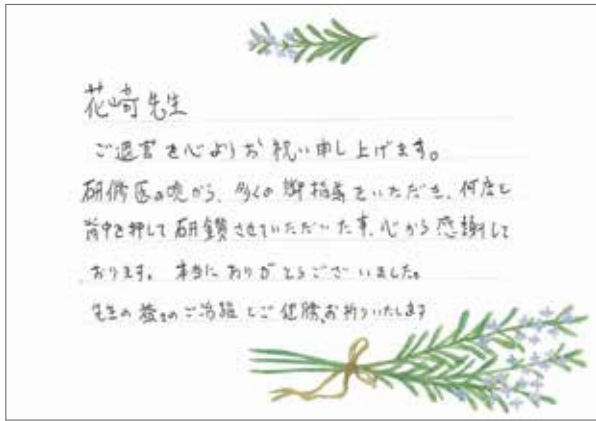 花崎先生
ご退官を心よりお祝い申し上げます。
研修医の頃から、多くの御指導をいただき、何度も
背中を押して研鑽させていただいた事、心から感謝して
おります。本当にありがとうございました。
先生の益々のご活躍とご健勝、お祈りいたします